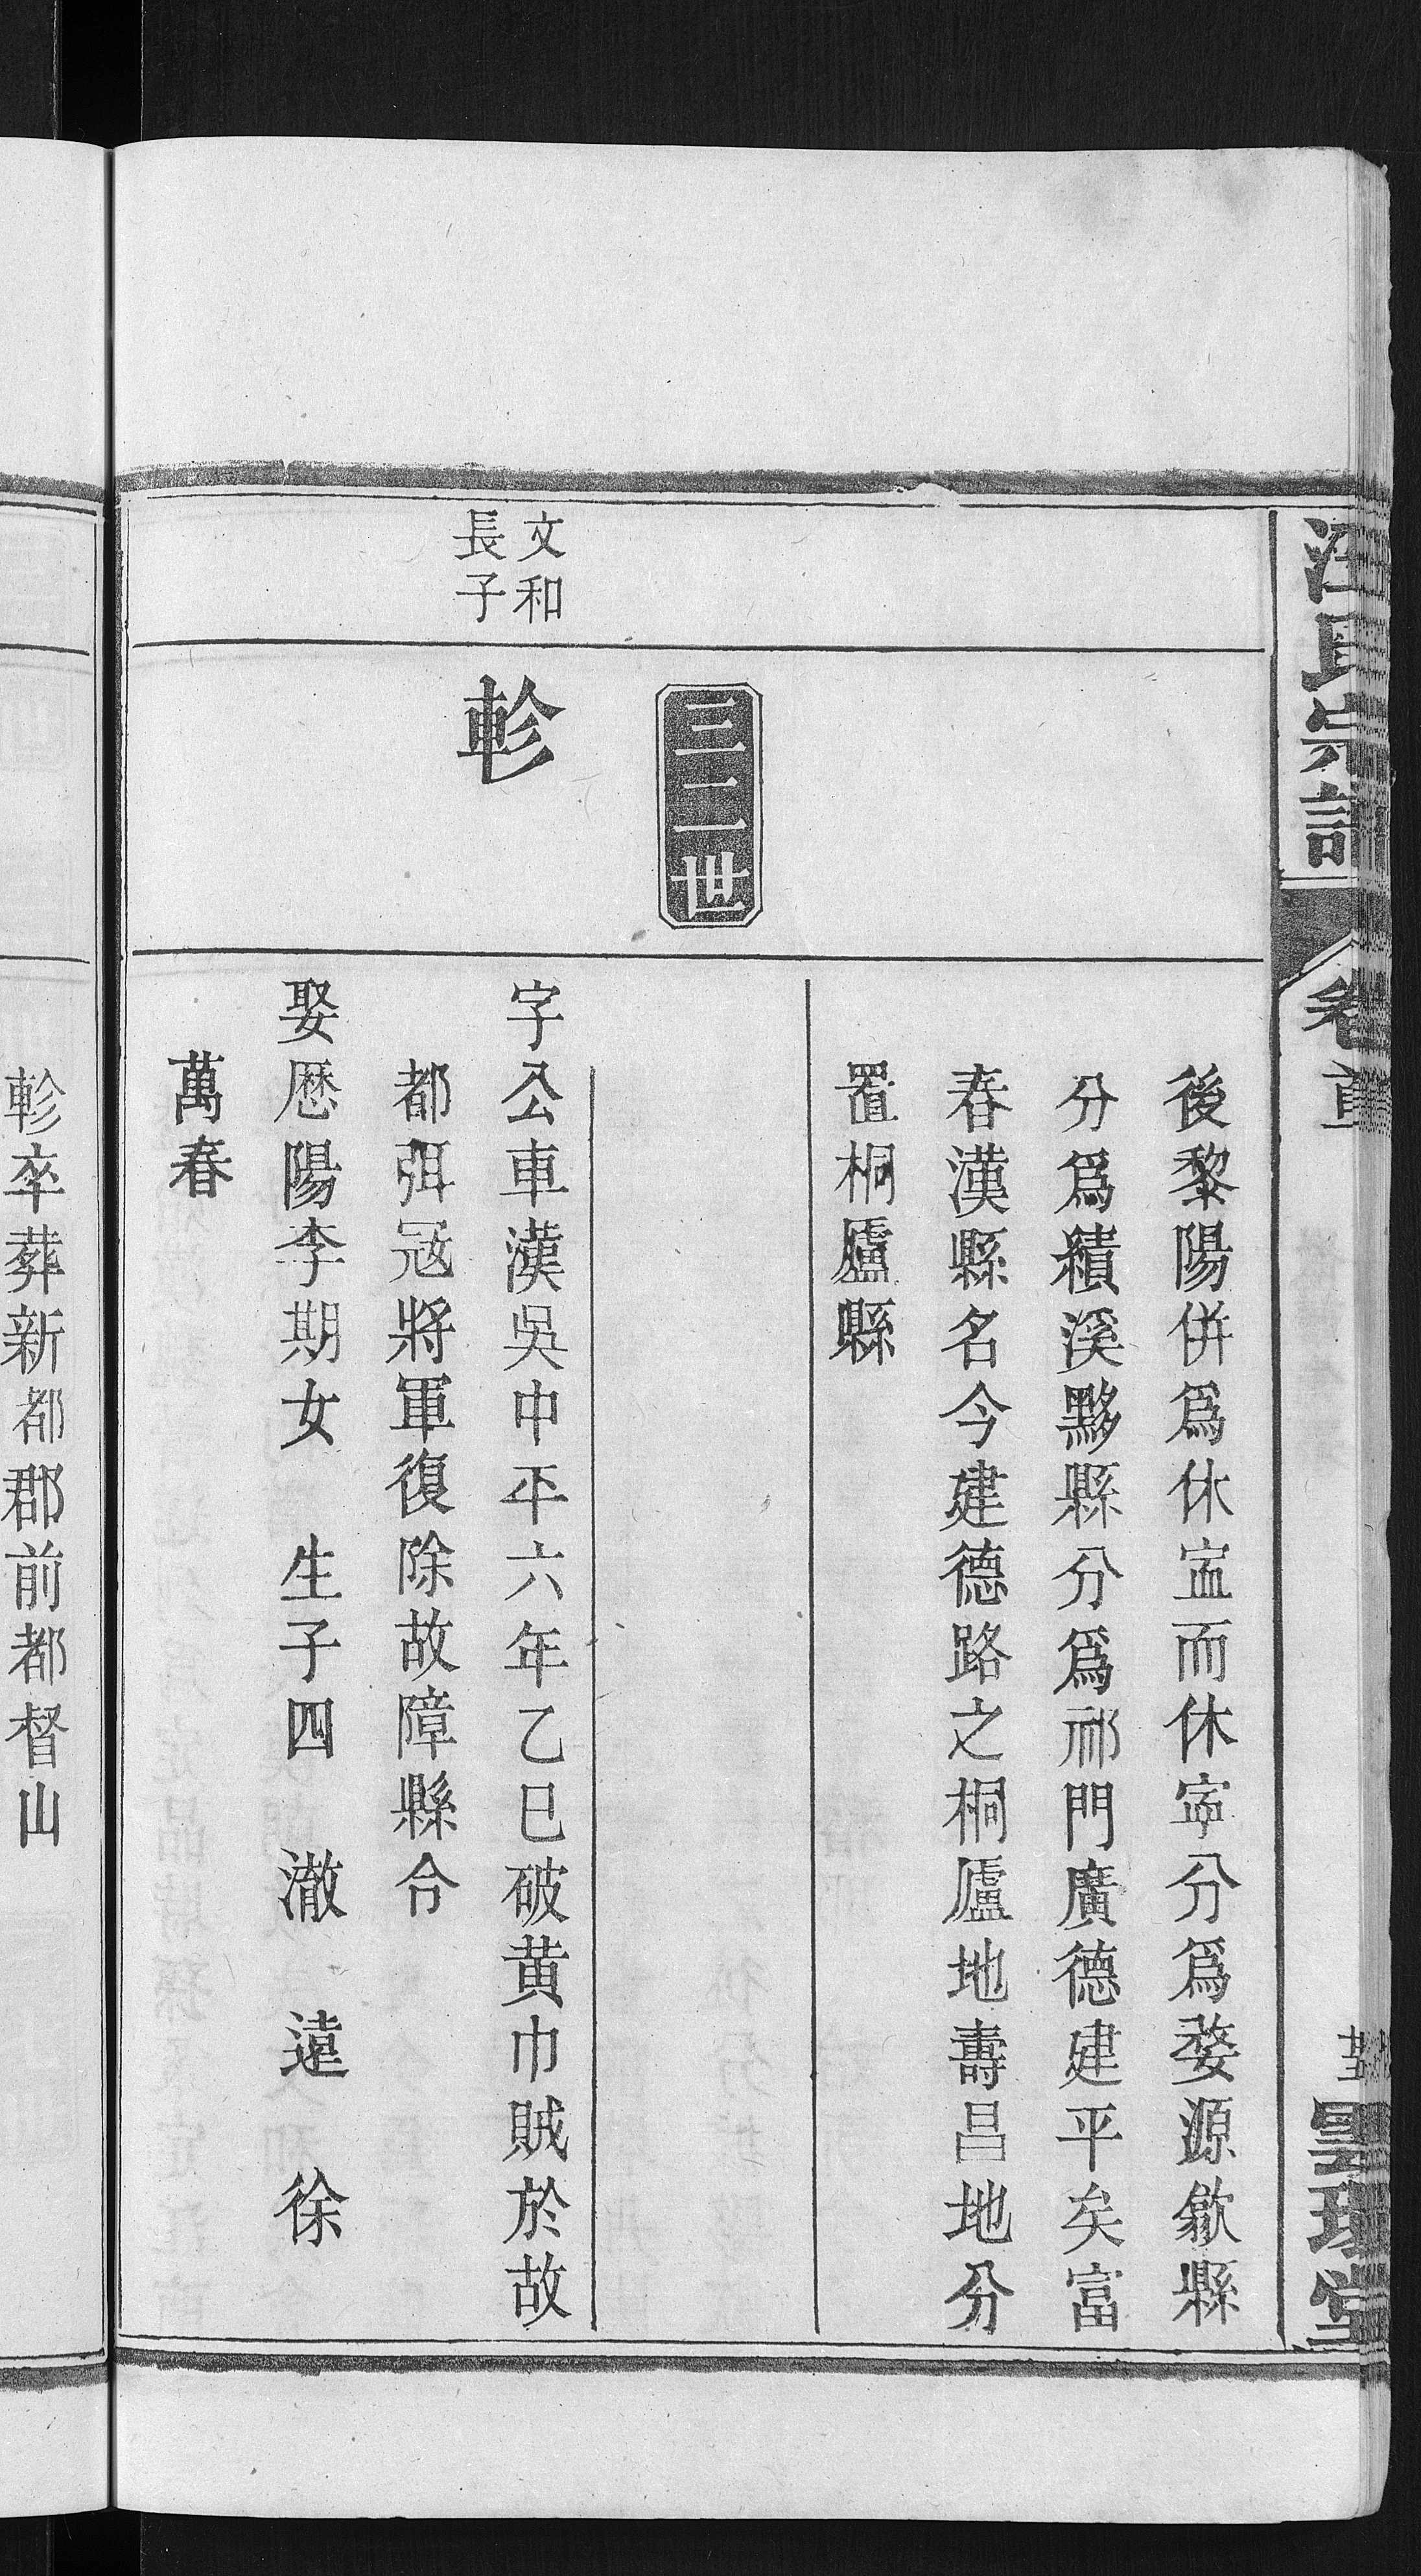 汪氏宗譜
卷首
墨瑞堂
後黎陽併爲休寍而休寧分爲婺源歙縣
分爲績溪黟縣分爲祁門廣德建平矣富
春漢縣名今建德路之桐廬地壽昌地分
置桐廬縣
三二世
文和
長子
軫
字公車漢吳中平六年乙巳破黄巾賊於故
都弭冦將軍復除故障縣令
娶厯陽李期女 生子四 澈 遠 徐
萬春
軫卒葬新都郡前都督山